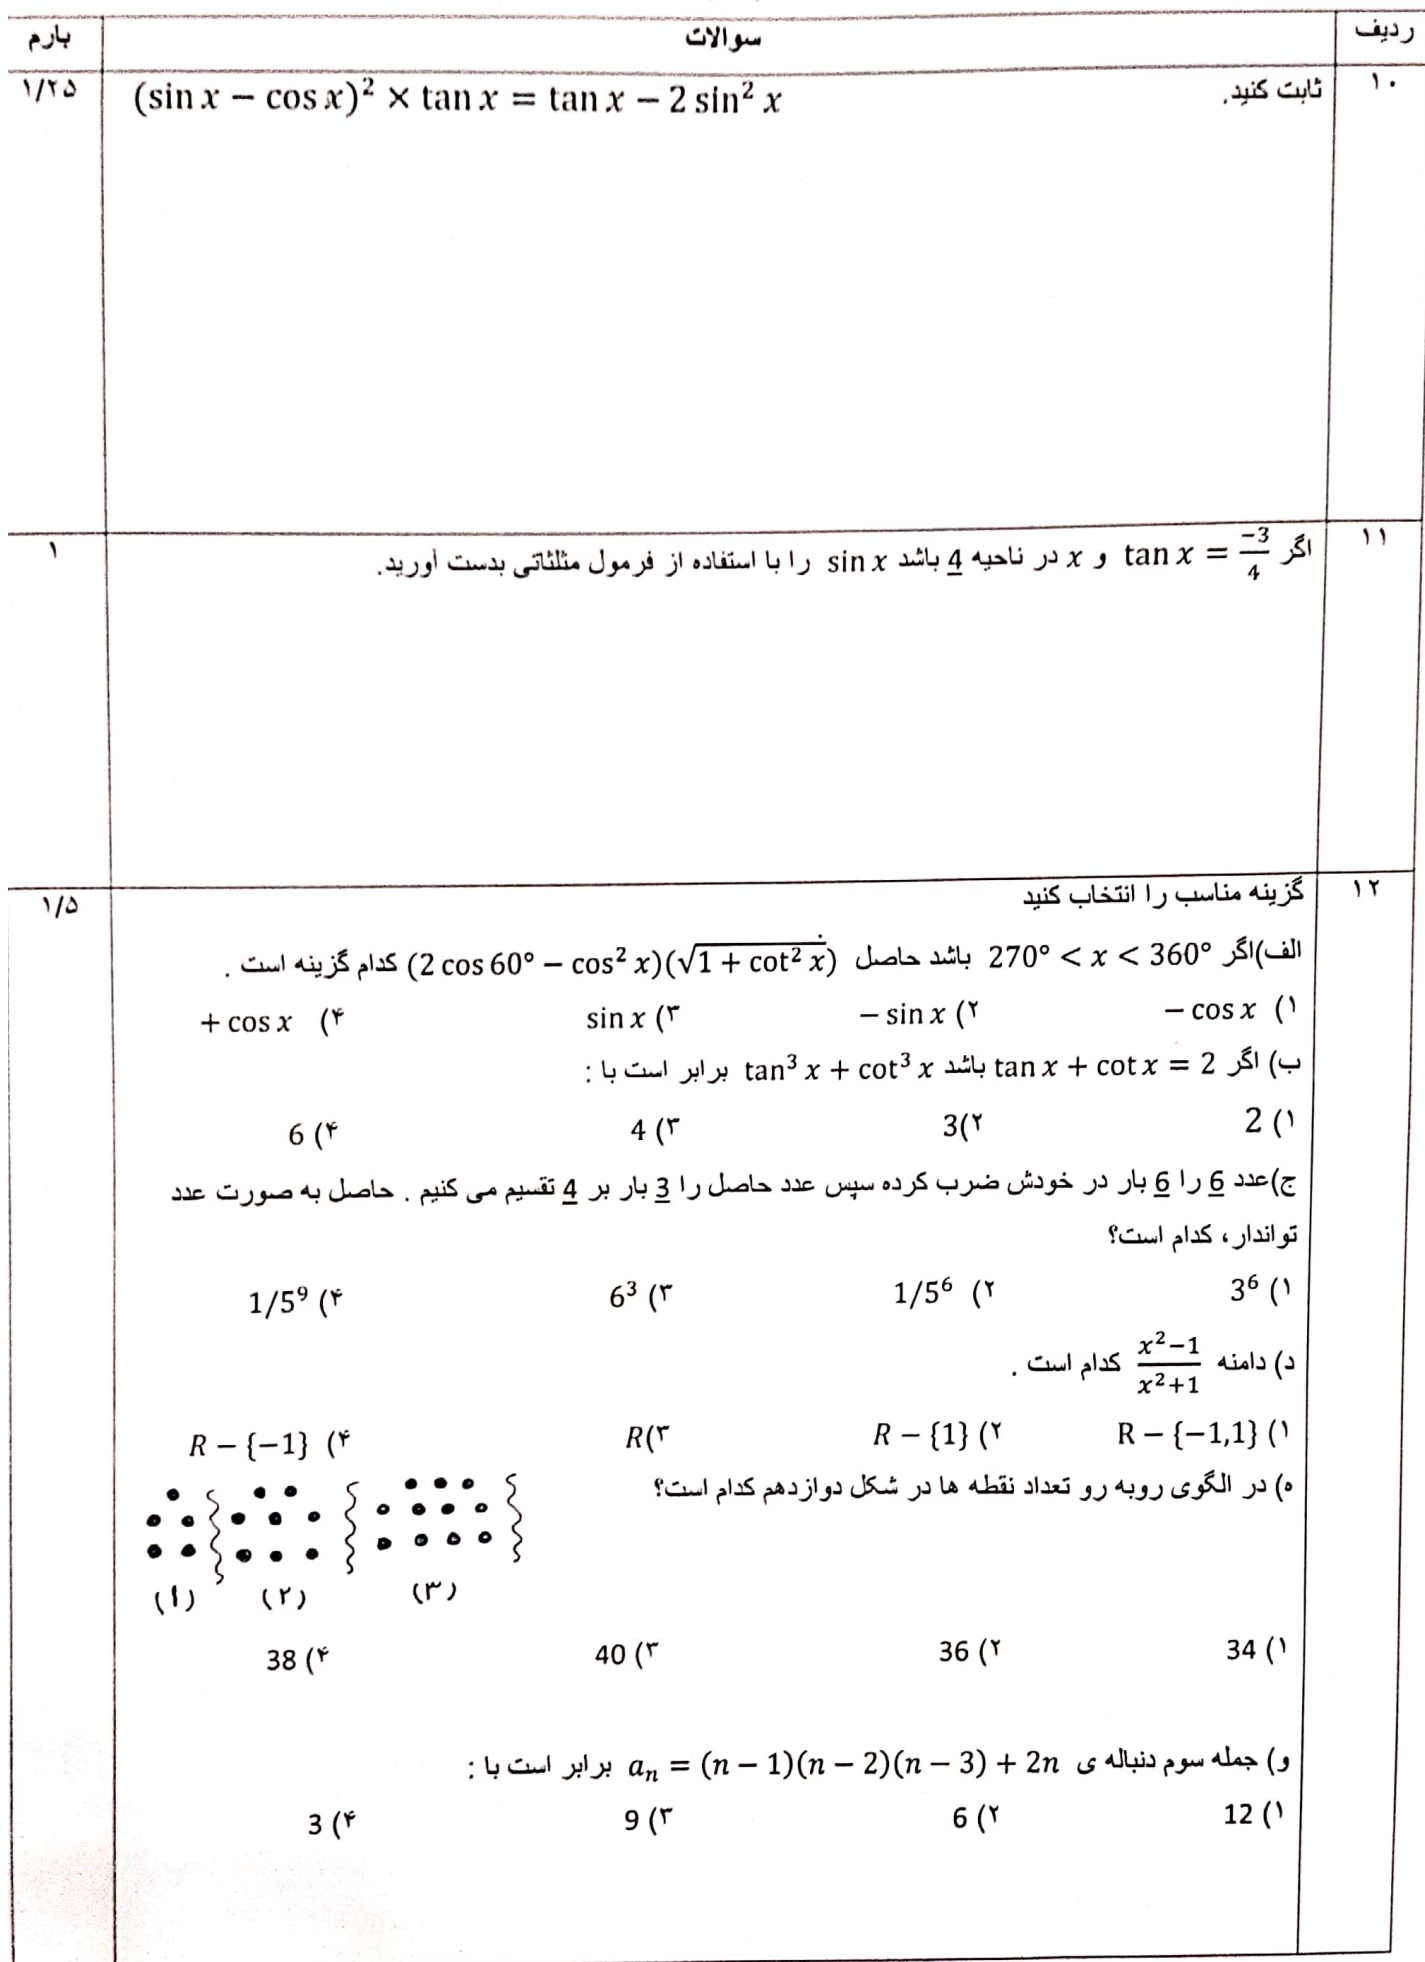 ردیف سوالات بارم
۱۰ ثابت کنید. (sin x − cos x)² × tan x = tan x − 2 sin² x ۱/۲۵
۱۱ اگر tan x = −3/4 و x در ناحیه 4 باشد sin x را با استفاده از فرمول مثلثاتی بدست آورید. ۱
۱۲ گزینه مناسب را انتخاب کنید ۱/۵
الف)اگر 270° < x < 360° باشد حاصل (2 cos 60° − cos² x)(√(1 + cot² x)) کدام گزینه است .
۱) − cos x ۲) − sin x ۳) sin x ۴) + cos x
ب) اگر tan x + cot x = 2 باشد tan³ x + cot³ x برابر است با :
۱) 2 ۲)3 ۳) 4 ۴) 6
ج)عدد 6 را 6 بار در خودش ضرب کرده سپس عدد حاصل را 3 بار بر 4 تقسیم می کنیم . حاصل به صورت عدد
تواندار، کدام است؟
۱) 3⁶ ۲) 1/5⁶ ۳) 6³ ۴) 1/5⁹
د) دامنه (x²−1)/(x²+1) کدام است .
۱) R − {−1,1} ۲) R − {1} ۳)R ۴) R − {−1}
ه) در الگوی روبه رو تعداد نقطه ها در شکل دوازدهم کدام است؟
(۱) (۲) (۳)
۱) 34 ۲) 36 ۳) 40 ۴) 38
و) جمله سوم دنباله ی aₙ = (n − 1)(n − 2)(n − 3) + 2n برابر است با :
۱) 12 ۲) 6 ۳) 9 ۴) 3